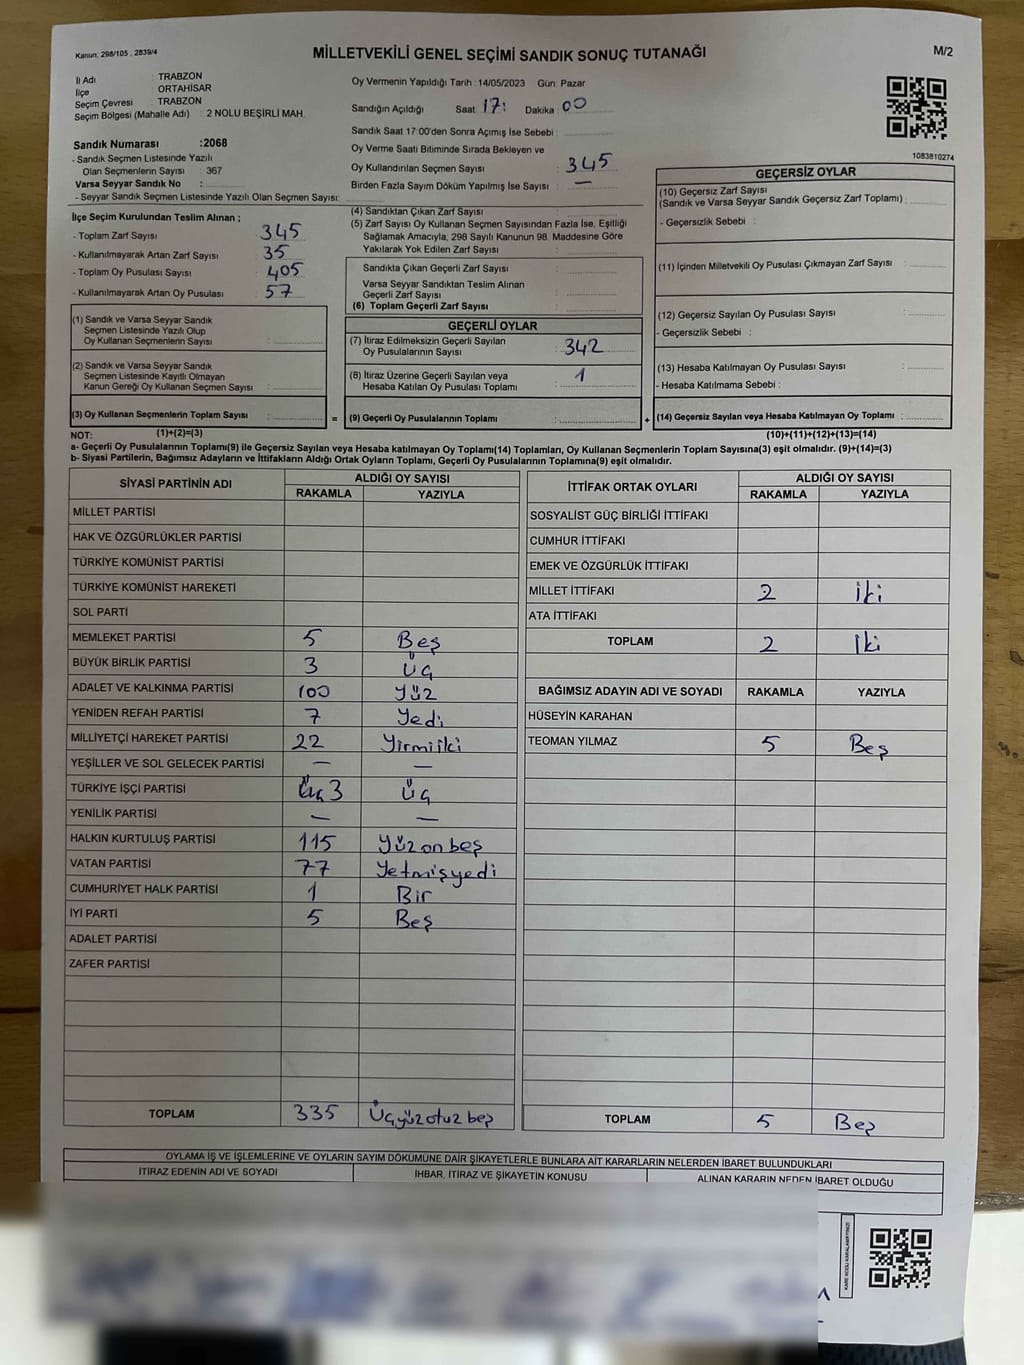 Kanun: 298/105 . 2839/4
MİLLETVEKİLİ GENEL SEÇİMİ SANDIK SONUÇ TUTANAĞI
M/2
İl Adı : TRABZON
İlçe : ORTAHİSAR
Seçim Çevresi : TRABZON
Seçim Bölgesi (Mahalle Adı) : 2 NOLU BEŞİRLİ MAH.
Sandık Numarası :2068
- Sandık Seçmen Listesinde Yazılı
Olan Seçmenlerin Sayısı : 367
Varsa Seyyar Sandık No :
- Seyyar Sandık Seçmen Listesinde Yazılı Olan Seçmen Sayısı:
Oy Vermenin Yapıldığı Tarih : 14/05/2023 Gün: Pazar
Sandığın Açıldığı Saat : 17: Dakika : 00
Sandık Saat 17:00'den Sonra Açımış İse Sebebi :
Oy Verme Saati Bitiminde Sırada Bekleyen ve
Oy Kullandırılan Seçmen Sayısı : 345
Birden Fazla Sayım Döküm Yapılmış İse Sayısı : —
1083810274
İlçe Seçim Kurulundan Teslim Alınan ;
- Toplam Zarf Sayısı : 345
- Kullanılmayarak Artan Zarf Sayısı : 35
- Toplam Oy Pusulası Sayısı : 405
- Kullanılmayarak Artan Oy Pusulası : 57
(1) Sandık ve Varsa Seyyar Sandık
Seçmen Listesinde Yazılı Olup
Oy Kullanan Seçmenlerin Sayısı :
(2) Sandık ve Varsa Seyyar Sandık
Seçmen Listesinde Kayıtlı Olmayan
Kanun Gereği Oy Kullanan Seçmen Sayısı :
(3) Oy Kullanan Seçmenlerin Toplam Sayısı :
(1)+(2)=(3)
(4) Sandıktan Çıkan Zarf Sayısı :
(5) Zarf Sayısı Oy Kullanan Seçmen Sayısından Fazla İse, Eşitliği
Sağlamak Amacıyla; 298 Sayılı Kanunun 98. Maddesine Göre
Yakılarak Yok Edilen Zarf Sayısı :
Sandıkta Çıkan Geçerli Zarf Sayısı :
Varsa Seyyar Sandıktan Teslim Alınan
Geçerli Zarf Sayısı :
(6) Toplam Geçerli Zarf Sayısı :
GEÇERLİ OYLAR
(7) İtiraz Edilmeksizin Geçerli Sayılan
Oy Pusulalarının Sayısı : 342
(8) İtiraz Üzerine Geçerli Sayılan veya
Hesaba Katılan Oy Pusulası Toplamı : 1
= (9) Geçerli Oy Pusulalarının Toplamı :
GEÇERSİZ OYLAR
(10) Geçersiz Zarf Sayısı
(Sandık ve Varsa Seyyar Sandık Geçersiz Zarf Toplamı) :
- Geçersizlik Sebebi :
(11) İçinden Milletvekili Oy Pusulası Çıkmayan Zarf Sayısı :
(12) Geçersiz Sayılan Oy Pusulası Sayısı :
- Geçersizlik Sebebi :
(13) Hesaba Katılmayan Oy Pusulası Sayısı :
- Hesaba Katılmama Sebebi :
+ (14) Geçersiz Sayılan veya Hesaba Katılmayan Oy Toplamı :
(10)+(11)+(12)+(13)=(14)
NOT:
a- Geçerli Oy Pusulalarının Toplamı(9) ile Geçersiz Sayılan veya Hesaba katılmayan Oy Toplamı(14) Toplamları, Oy Kullanan Seçmenlerin Toplam Sayısına(3) eşit olmalıdır. (9)+(14)=(3)
b- Siyasi Partilerin, Bağımsız Adayların ve İttifakların Aldığı Ortak Oyların Toplamı, Geçerli Oy Pusulalarının Toplamına(9) eşit olmalıdır.
SİYASİ PARTİNİN ADI ALDIĞI OY SAYISI
RAKAMLA YAZIYLA
MİLLET PARTİSİ
HAK VE ÖZGÜRLÜKLER PARTİSİ
TÜRKİYE KOMÜNİST PARTİSİ
TÜRKİYE KOMÜNİST HAREKETİ
SOL PARTİ
MEMLEKET PARTİSİ 5 Beş
BÜYÜK BİRLİK PARTİSİ 3 Üç
ADALET VE KALKINMA PARTİSİ 100 Yüz
YENİDEN REFAH PARTİSİ 7 Yedi
MİLLİYETÇİ HAREKET PARTİSİ 22 Yirmiiki
YEŞİLLER VE SOL GELECEK PARTİSİ — —
TÜRKİYE İŞÇİ PARTİSİ Üç 3 Üç
YENİLİK PARTİSİ — —
HALKIN KURTULUŞ PARTİSİ 115 Yüzonbeş
VATAN PARTİSİ 77 Yetmişyedi
CUMHURİYET HALK PARTİSİ 1 Bir
İYİ PARTİ 5 Beş
ADALET PARTİSİ
ZAFER PARTİSİ
TOPLAM 335 Üçyüzotuzbeş
İTTİFAK ORTAK OYLARI ALDIĞI OY SAYISI
RAKAMLA YAZIYLA
SOSYALİST GÜÇ BİRLİĞİ İTTİFAKI
CUMHUR İTTİFAKI
EMEK VE ÖZGÜRLÜK İTTİFAKI
MİLLET İTTİFAKI 2 İki
ATA İTTİFAKI
TOPLAM 2 İki
BAĞIMSIZ ADAYIN ADI VE SOYADI RAKAMLA YAZIYLA
HÜSEYİN KARAHAN
TEOMAN YILMAZ 5 Beş
TOPLAM 5 Beş
OYLAMA İŞ VE İŞLEMLERİNE VE OYLARIN SAYIM DÖKÜMÜNE DAİR ŞİKAYETLERLE BUNLARA AİT KARARLARIN NELERDEN İBARET BULUNDUKLARI
İTİRAZ EDENİN ADI VE SOYADI İHBAR, İTİRAZ VE ŞİKAYETİN KONUSU ALINAN KARARIN NEDEN İBARET OLDUĞU